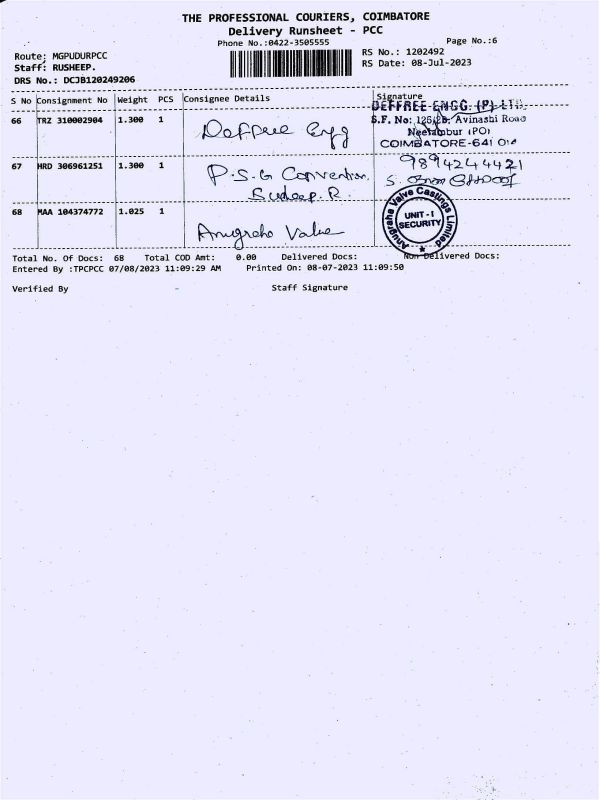 THE PROFESSIONAL COURIERS, COIMBATORE
Delivery Runsheet - PCC
Phone No.:0422-3505555
Page No.:6
Route: MGPUDURPCC
RS No.: 1202492
Staff: RUSHEEP.
RS Date: 08-Jul-2023
DRS No.: DCJB120249206
S No Consignment No Weight PCS Consignee Details Signature
66 TRZ 310002904 1.300 1 Deffree Engg
DEFFREE ENGG. (P) LTD.
S.F. No: 125/2B, Avinashi Road
Neelambur (PO)
COIMBATORE-641 014
67 MRD 306961251 1.300 1 P.S.G Convention
Sudeep.R.
9894244421
S.
68 MAA 104374772 1.025 1 Anugraha Value
Anugraha Valve Castings Limited
UNIT - I
SECURITY
Total No. Of Docs: 68 Total COD Amt: 0.00 Delivered Docs: Non Delivered Docs:
Entered By :TPCPCC 07/08/2023 11:09:29 AM Printed On: 08-07-2023 11:09:50
Verified By Staff Signature